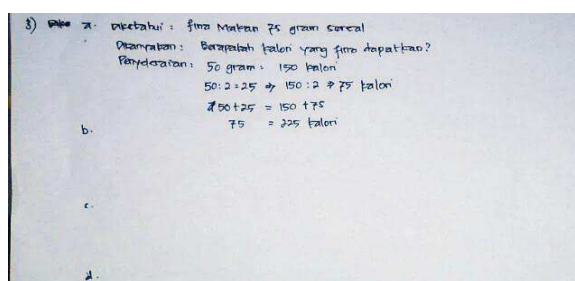 3) a. Diketahui : fira Makan 75 gram sereal
Ditanyakan : Berapakah kalori yang fira dapatkan?
Penyelesaian : 50 gram = 150 kalori
50 : 2 = 25 ⇒ 150 : 2 ⇒ 75 kalori
50 + 25 = 150 + 75
75 = 225 kalori
b.
c.
d.